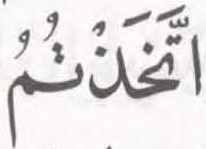 اتَّخَذْتُمُ